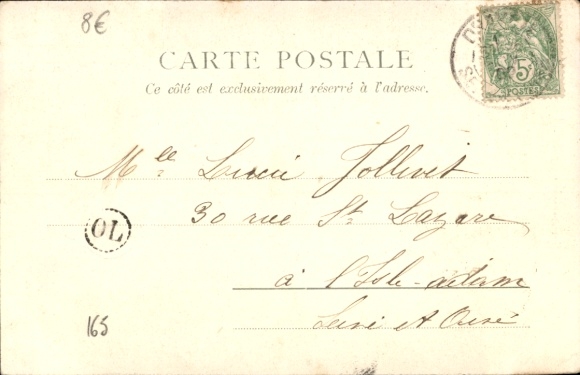 8€
CARTE POSTALE
Ce côté est exclusivement réservé à l'adresse.
5
POSTES
Mlle Jollivet
30 rue St Lazare
OL
à l'Isle-adam
Seine et Oise
165